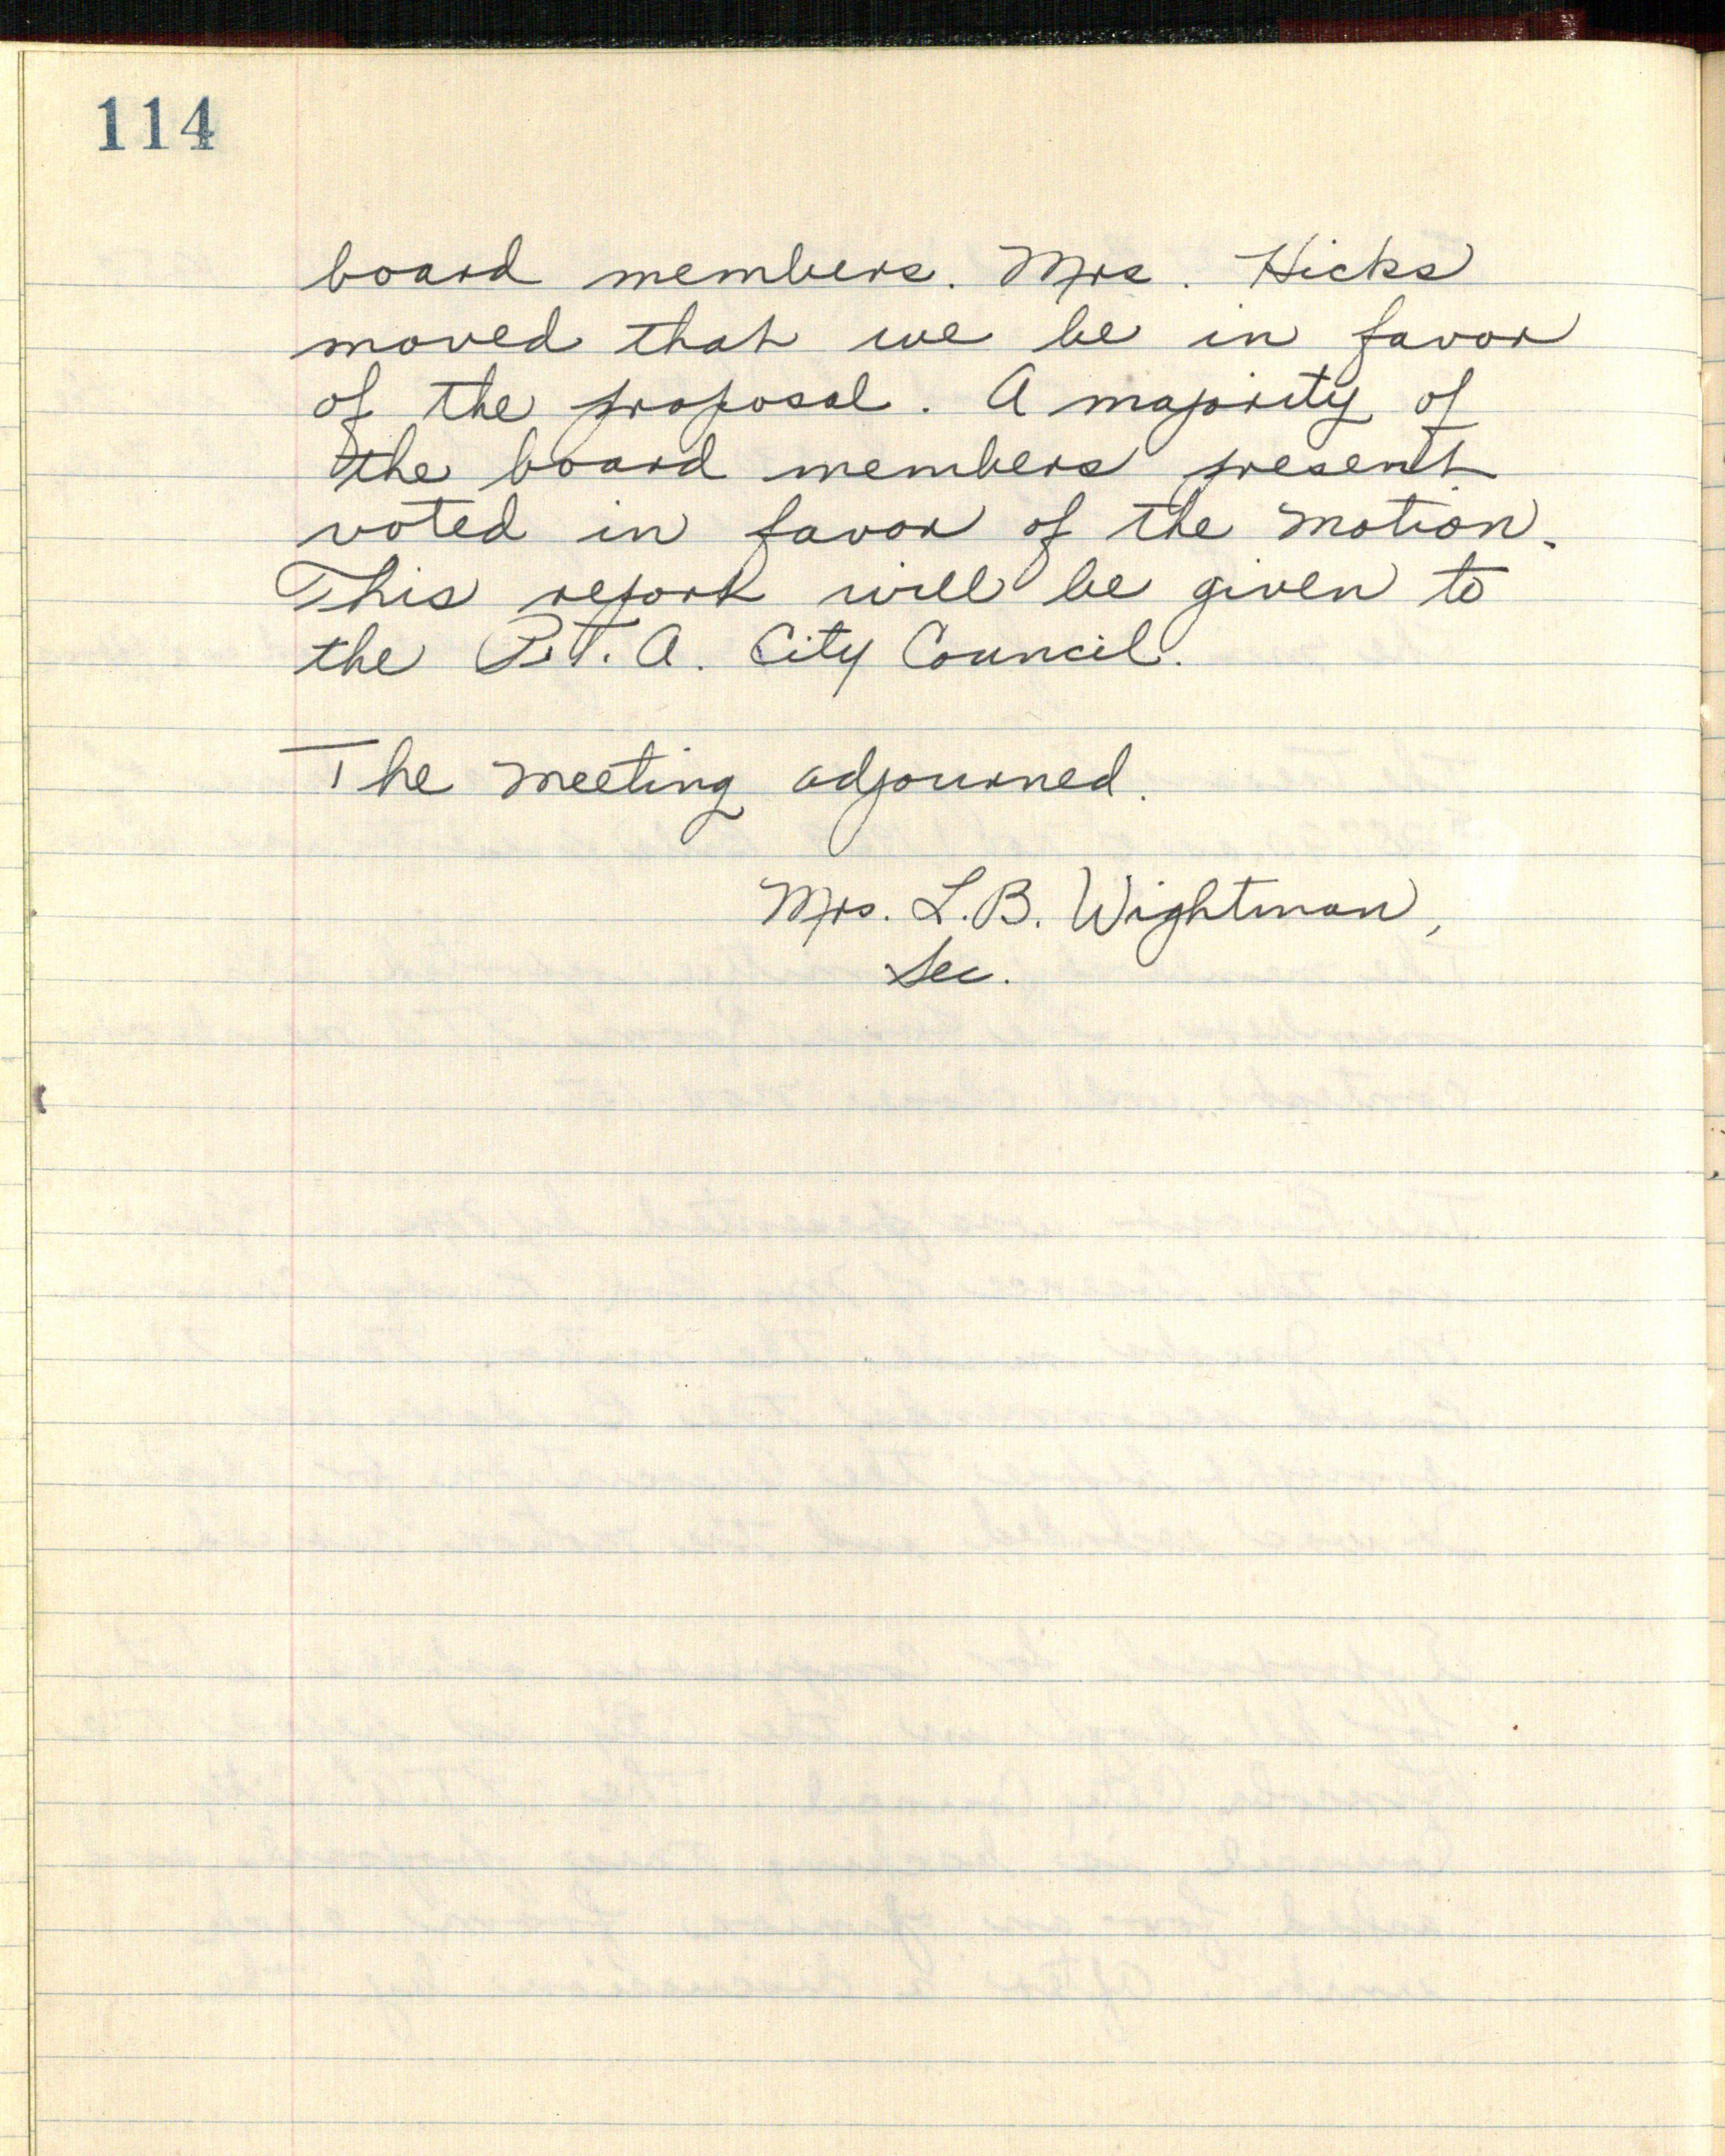 114
board members. Mrs. Hicks
moved that we be in favor
of the proposal. A majority of
the board members present
voted in favor of the motion.
This report will be given to
the P.T.A. City Council.
The meeting adjourned.
Mrs. L.B. Wightman,
Sec.